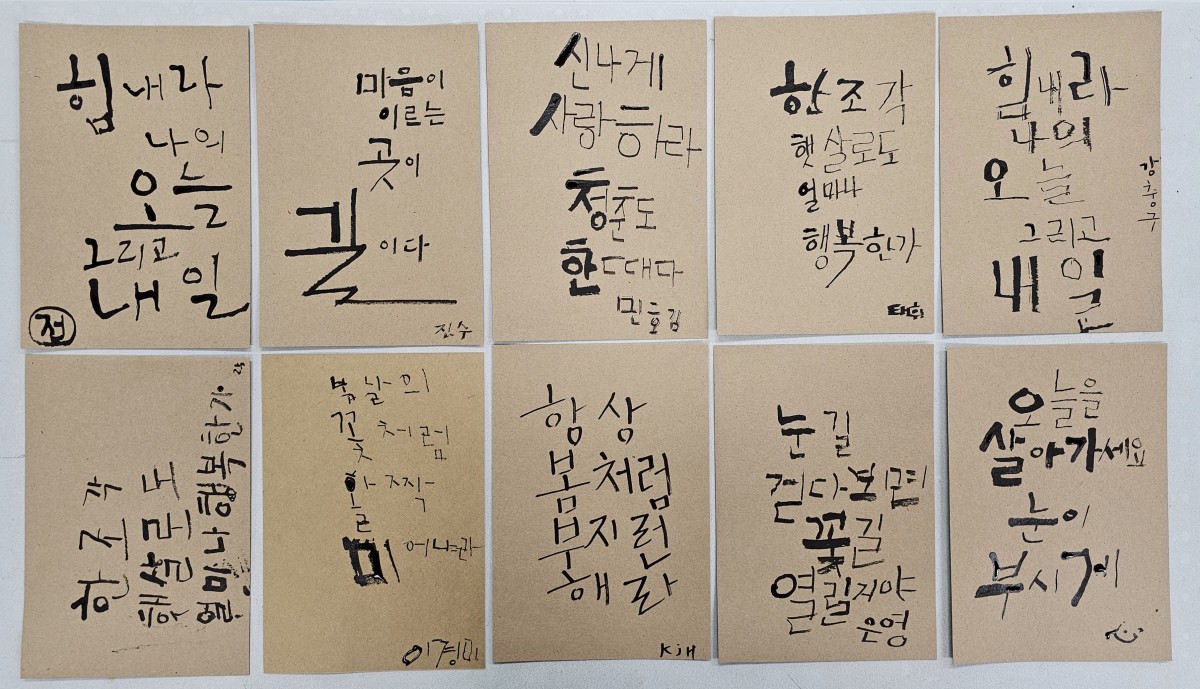 힘내라
나의
오늘
그리고
내일
마음이
이르는
곳이
길이다
진수
신나게
사랑하라
청춘도
한때다
민호김
한조각
햇살로도
얼마나
행복한가
태휘
힘내라
나의
오늘
그리고
내일
강충구
한조각
햇살로도
얼마나행복한가
봄날의
꽃처럼
활짝
피어나라
이경미
항상
봄처럼
부지런
해라
KJH
눈길
걷다보면
꽃길
열릴지야
은영
오늘을
살아가세요
눈이
부시게